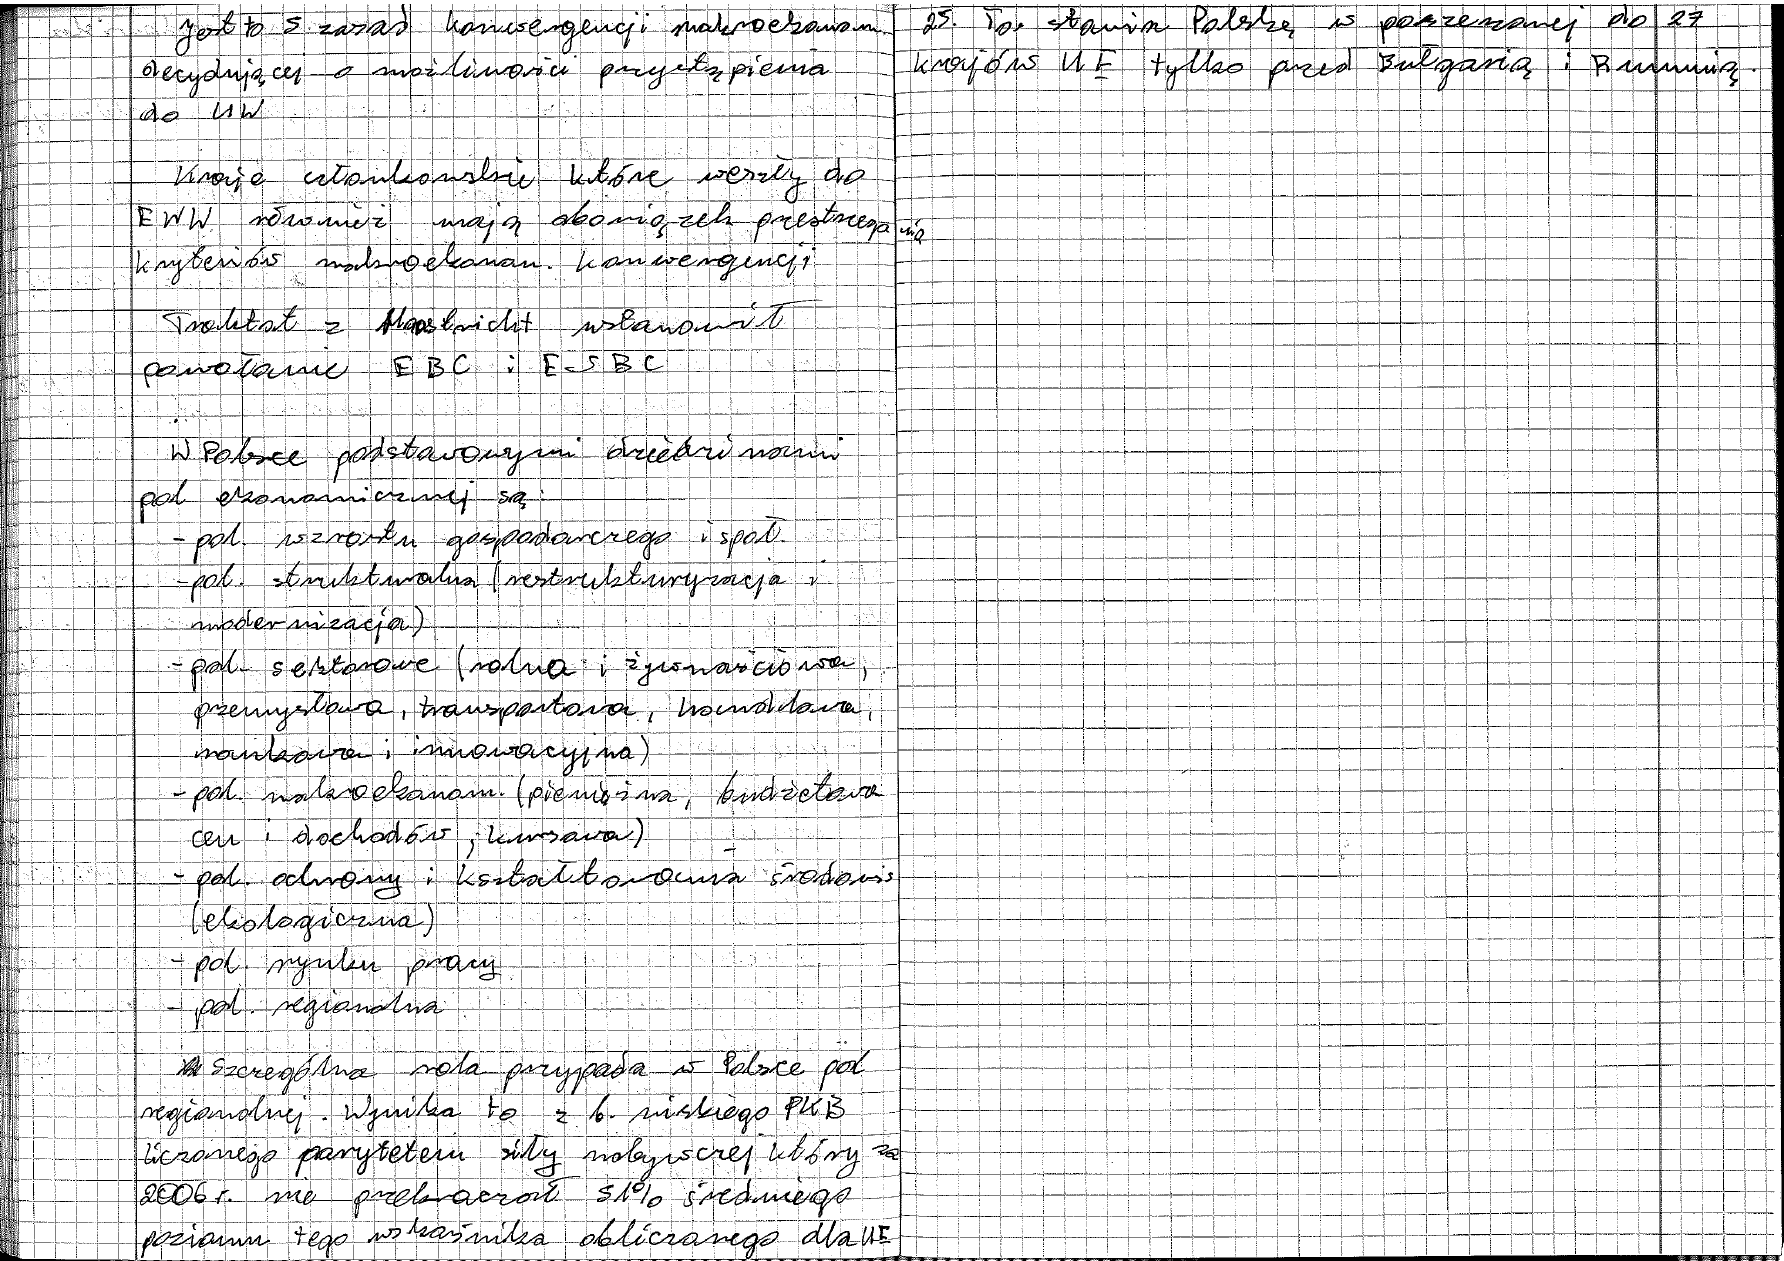 Jest to 5 zasad konwergencji makroekonom.
decydującej o możliwości przystąpienia
do UW
Kraje członkowskie które weszły do
EWW również mają obowiązek przestrzegania
kryteriów makroekonom. konwergencji
Traktat z Maastricht ustanowił
powołanie EBC i ESBC
W Polsce podstawowymi dziedzinami
pol ekonomicznej są:
- pol. wzrostu gospodarczego i społ.
- pol. strukturalna (restrukturyzacja i
modernizacja)
- pol. sektorowe (rolna i żywnościowa,
przemysłowa, transportowa, handlowa,
naukowa i innowacyjna)
- pol. makroekonom. (pieniężna, budżetowa
cen i dochodów, kursowa)
- pol. ochrony i kształtowania środowis
(ekologiczna)
- pol. rynku pracy
- pol. regionalna
Szczególna rola przypada w Polsce pol
regionalnej. Wynika to z b. niskiego PKB
liczonego parytetem siły nabywczej który za
2006 r. nie przekraczał 51% średniego
poziomu tego wskaźnika obliczanego dla UE
25. To stawia Polskę w poszerzonej do 27
krajów UE tylko przed Bułgarią i Rumunią.